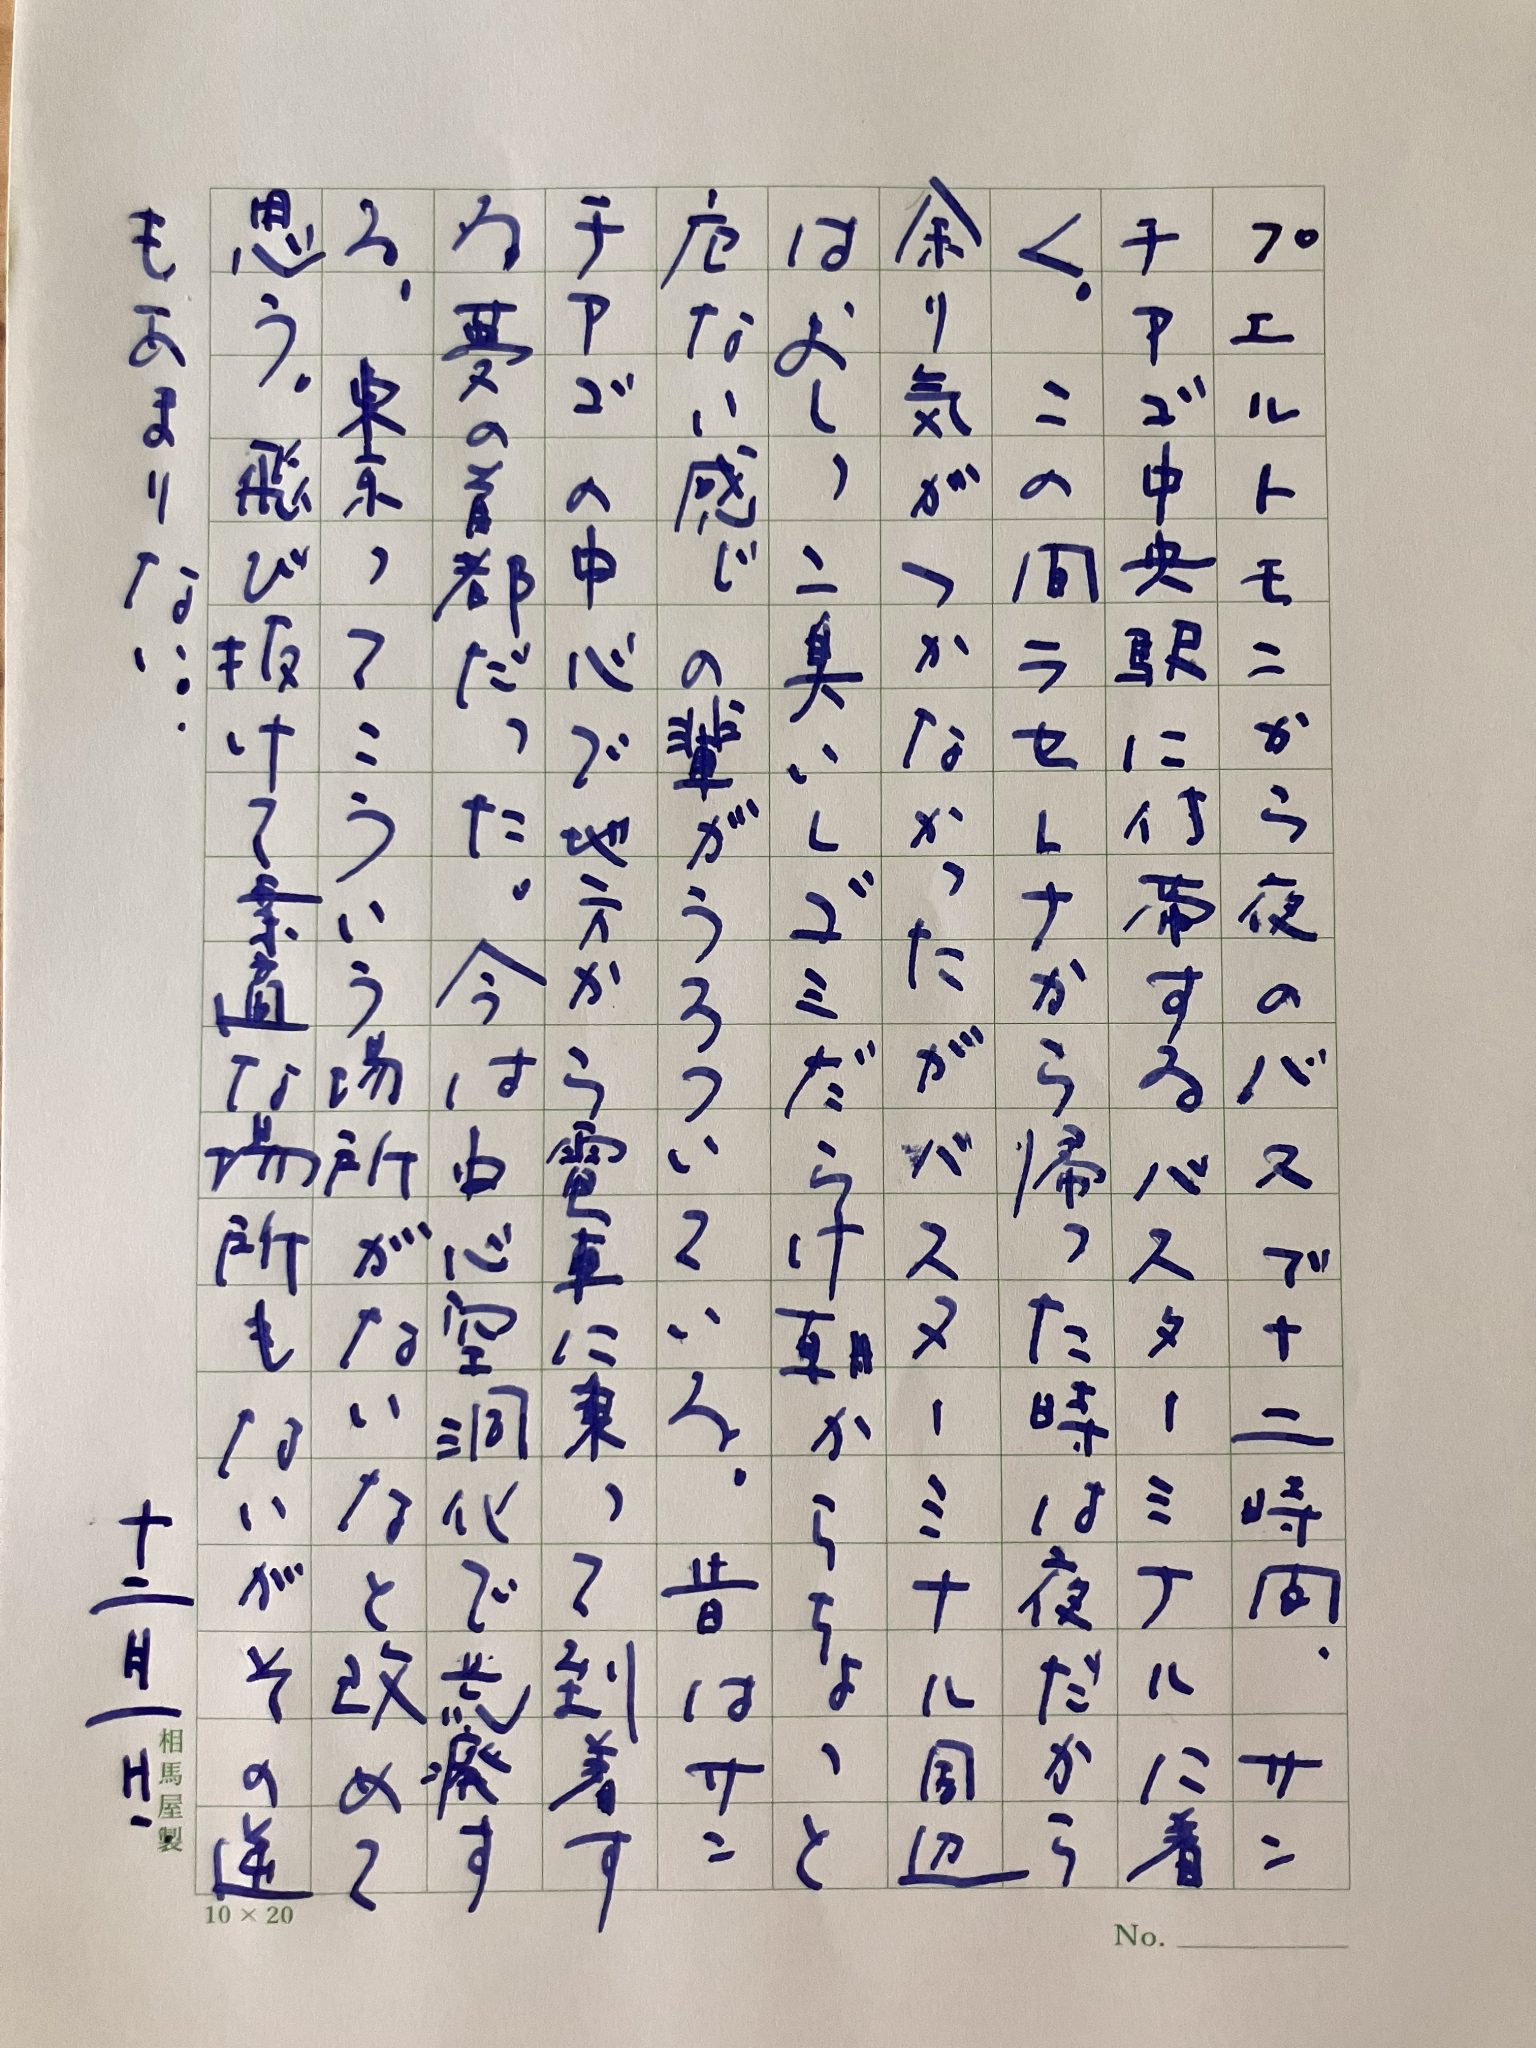 プエルトモンから夜のバスで十二時間、サン
チアゴ中央駅に付帯するバスターミナルに着
く。この間ラセレナから帰った時は夜だから
余り気がつかなかったがバスターミナル周辺
はおしっこ臭いしゴミだらけ朝からちょっと
危ない感じの輩がうろついている。昔はサン
チアゴの中心で地方から電車に乗って到着す
る夢の首都だった。今は中心空洞化で荒廃す
る。東京ってこういう場所がないなと改めて
思う。飛び抜けて素適な場所もないがその逆
もあまりない…
十二月一日
相馬屋製
10×20
No.